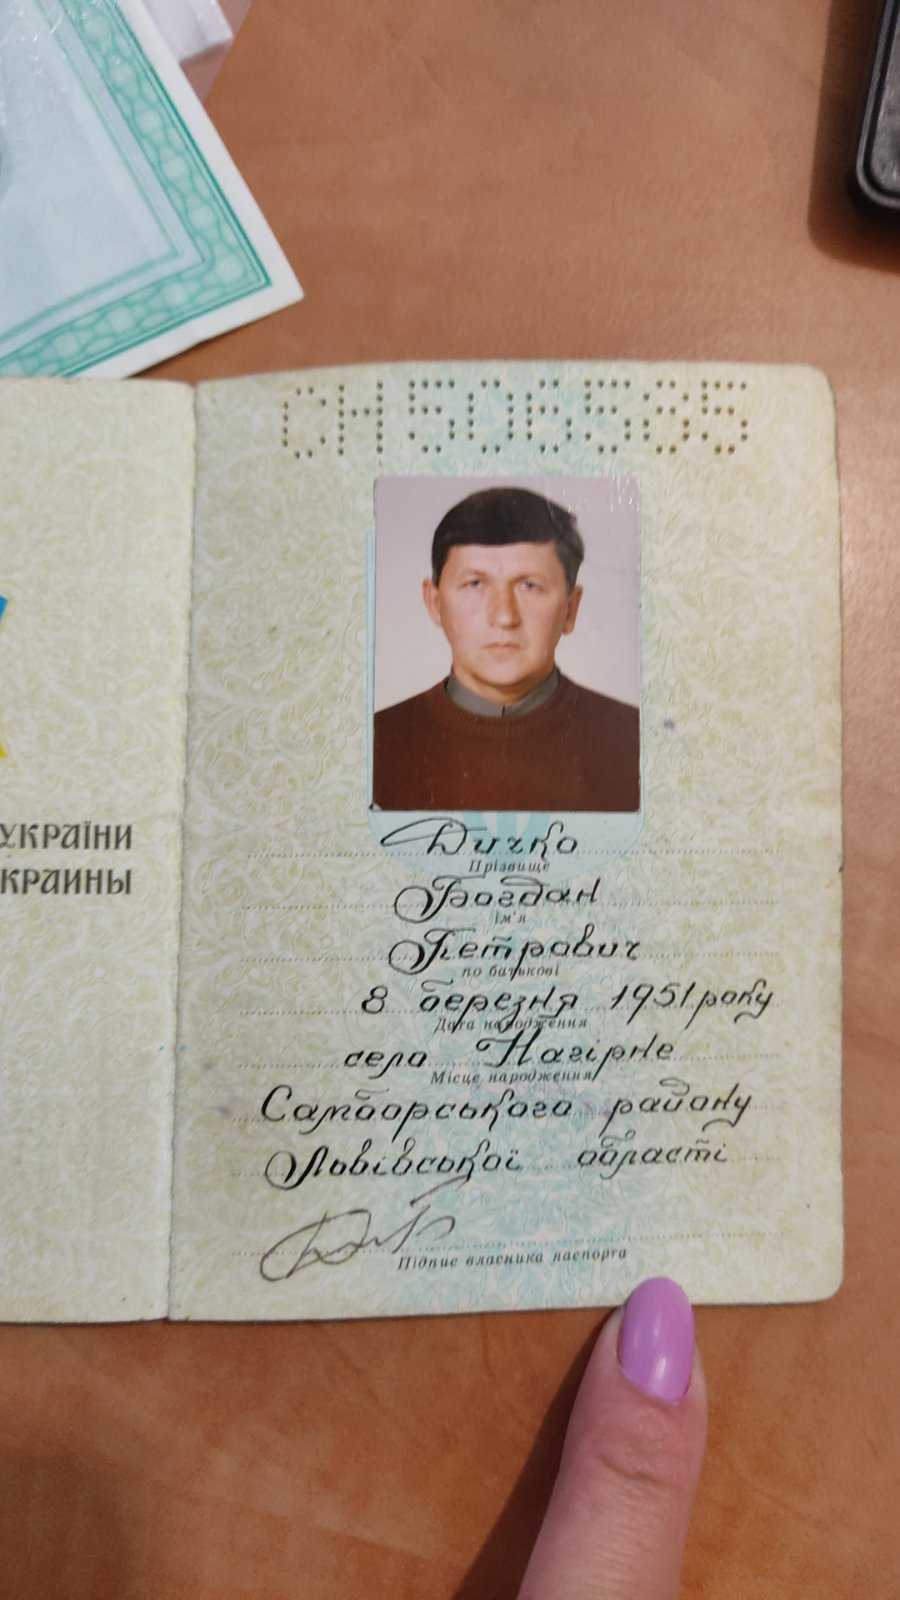 СН506585
УКРАЇНИ
КРАИНЫ
Дичко
Прізвище
Богдан
Ім'я
Петрович
по батькові
8 березня 1951 року
Дата народження
село Нагірне
Місце народження
Самборського району
Львівської області
Підпис власника паспорта